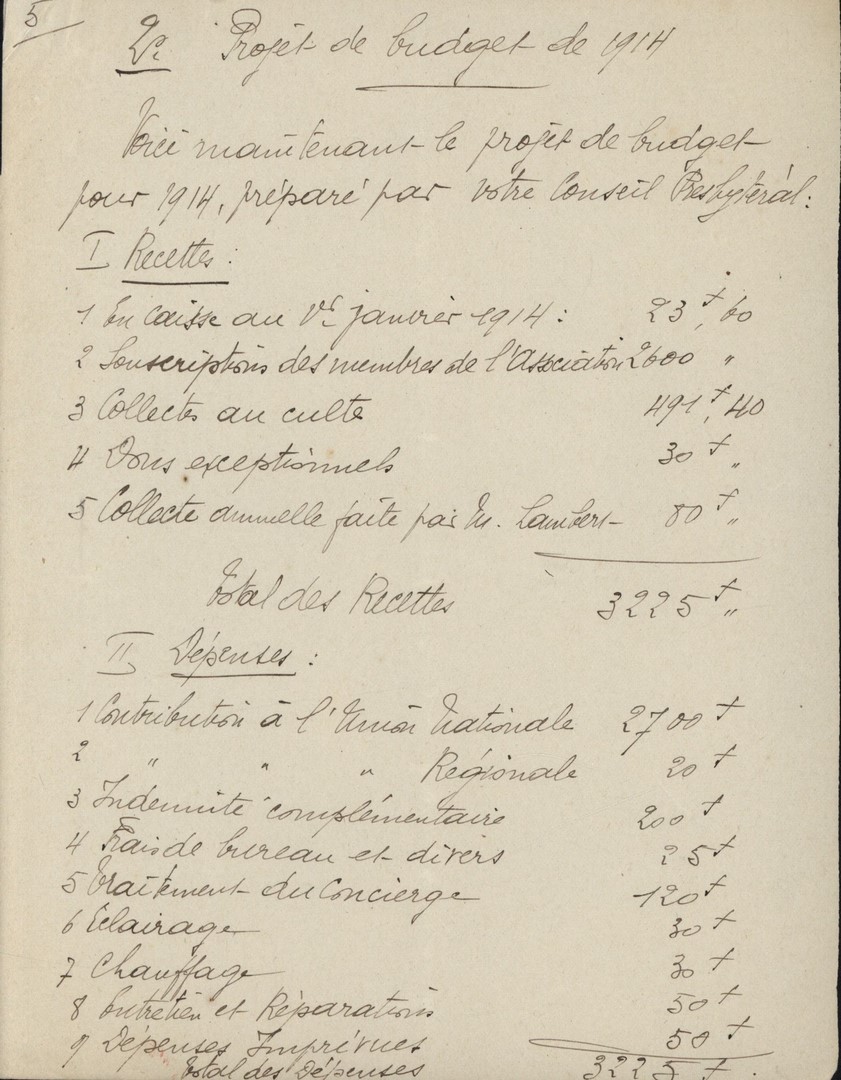 5
2º Projet de budget de 1914
Voici maintenant le projet de budget
pour 1914, préparé par votre Conseil Presbytéral :
I Recettes :
1 En caisse au 1er janvier 1914 : 23 f, 60
2 Souscriptions des membres de l'Association 2600 "
3 Collectes au culte 491 f, 40
4 Dons exceptionnels 30 f "
5 Collecte annuelle faite par M. Lambert 80 f "
Total des Recettes 3225 f "
II Dépenses :
1 Contribution à l'Union Nationale 2700 f
2 " " " Régionale 20 f
3 Indemnité complémentaire 200 f
4 Frais de bureau et divers 25 f
5 Traitement du Concierge 120 f
6 Eclairage 30 f
7 Chauffage 30 f
8 Entretien et Réparations 50 f
9 Dépenses Imprévues 50 f
Total des Dépenses 3225 f.